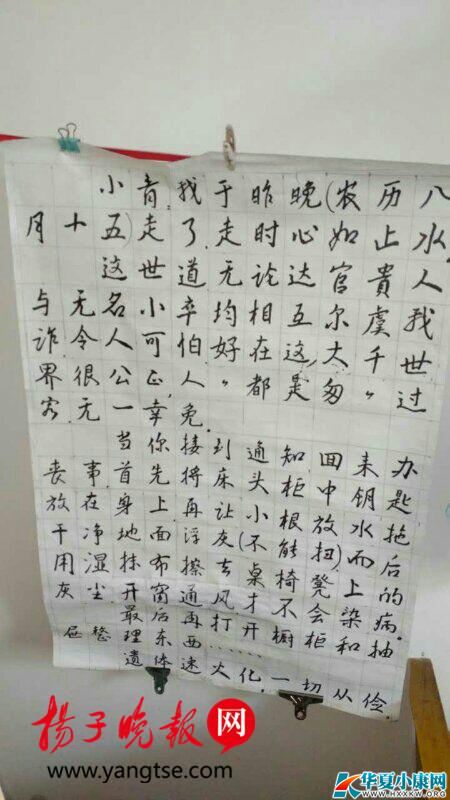 小青,我于昨晚(农历八
月十五)走了,走时心如止水,
这世道无论达官贵人
与无名小卒均相互尔虞我
诈,令人可怕,好在这大千世
界很公正,人〃都是匆〃过
客,无一幸免。
当你接到通知回来办
丧事,首先将床头柜中钥匙
放在身上,再让小根放水拖
干净地面浮灰(不能扭)而后
用湿抹布擦去桌椅凳上的
灰尘,开窗通风才不会染病.
最后再打开橱柜和抽
屉整理东西……
遗体速火化,一切从俭
扬子晚报网
www.yangtse.com
华夏小康网
WWW.HXXKW.ORG